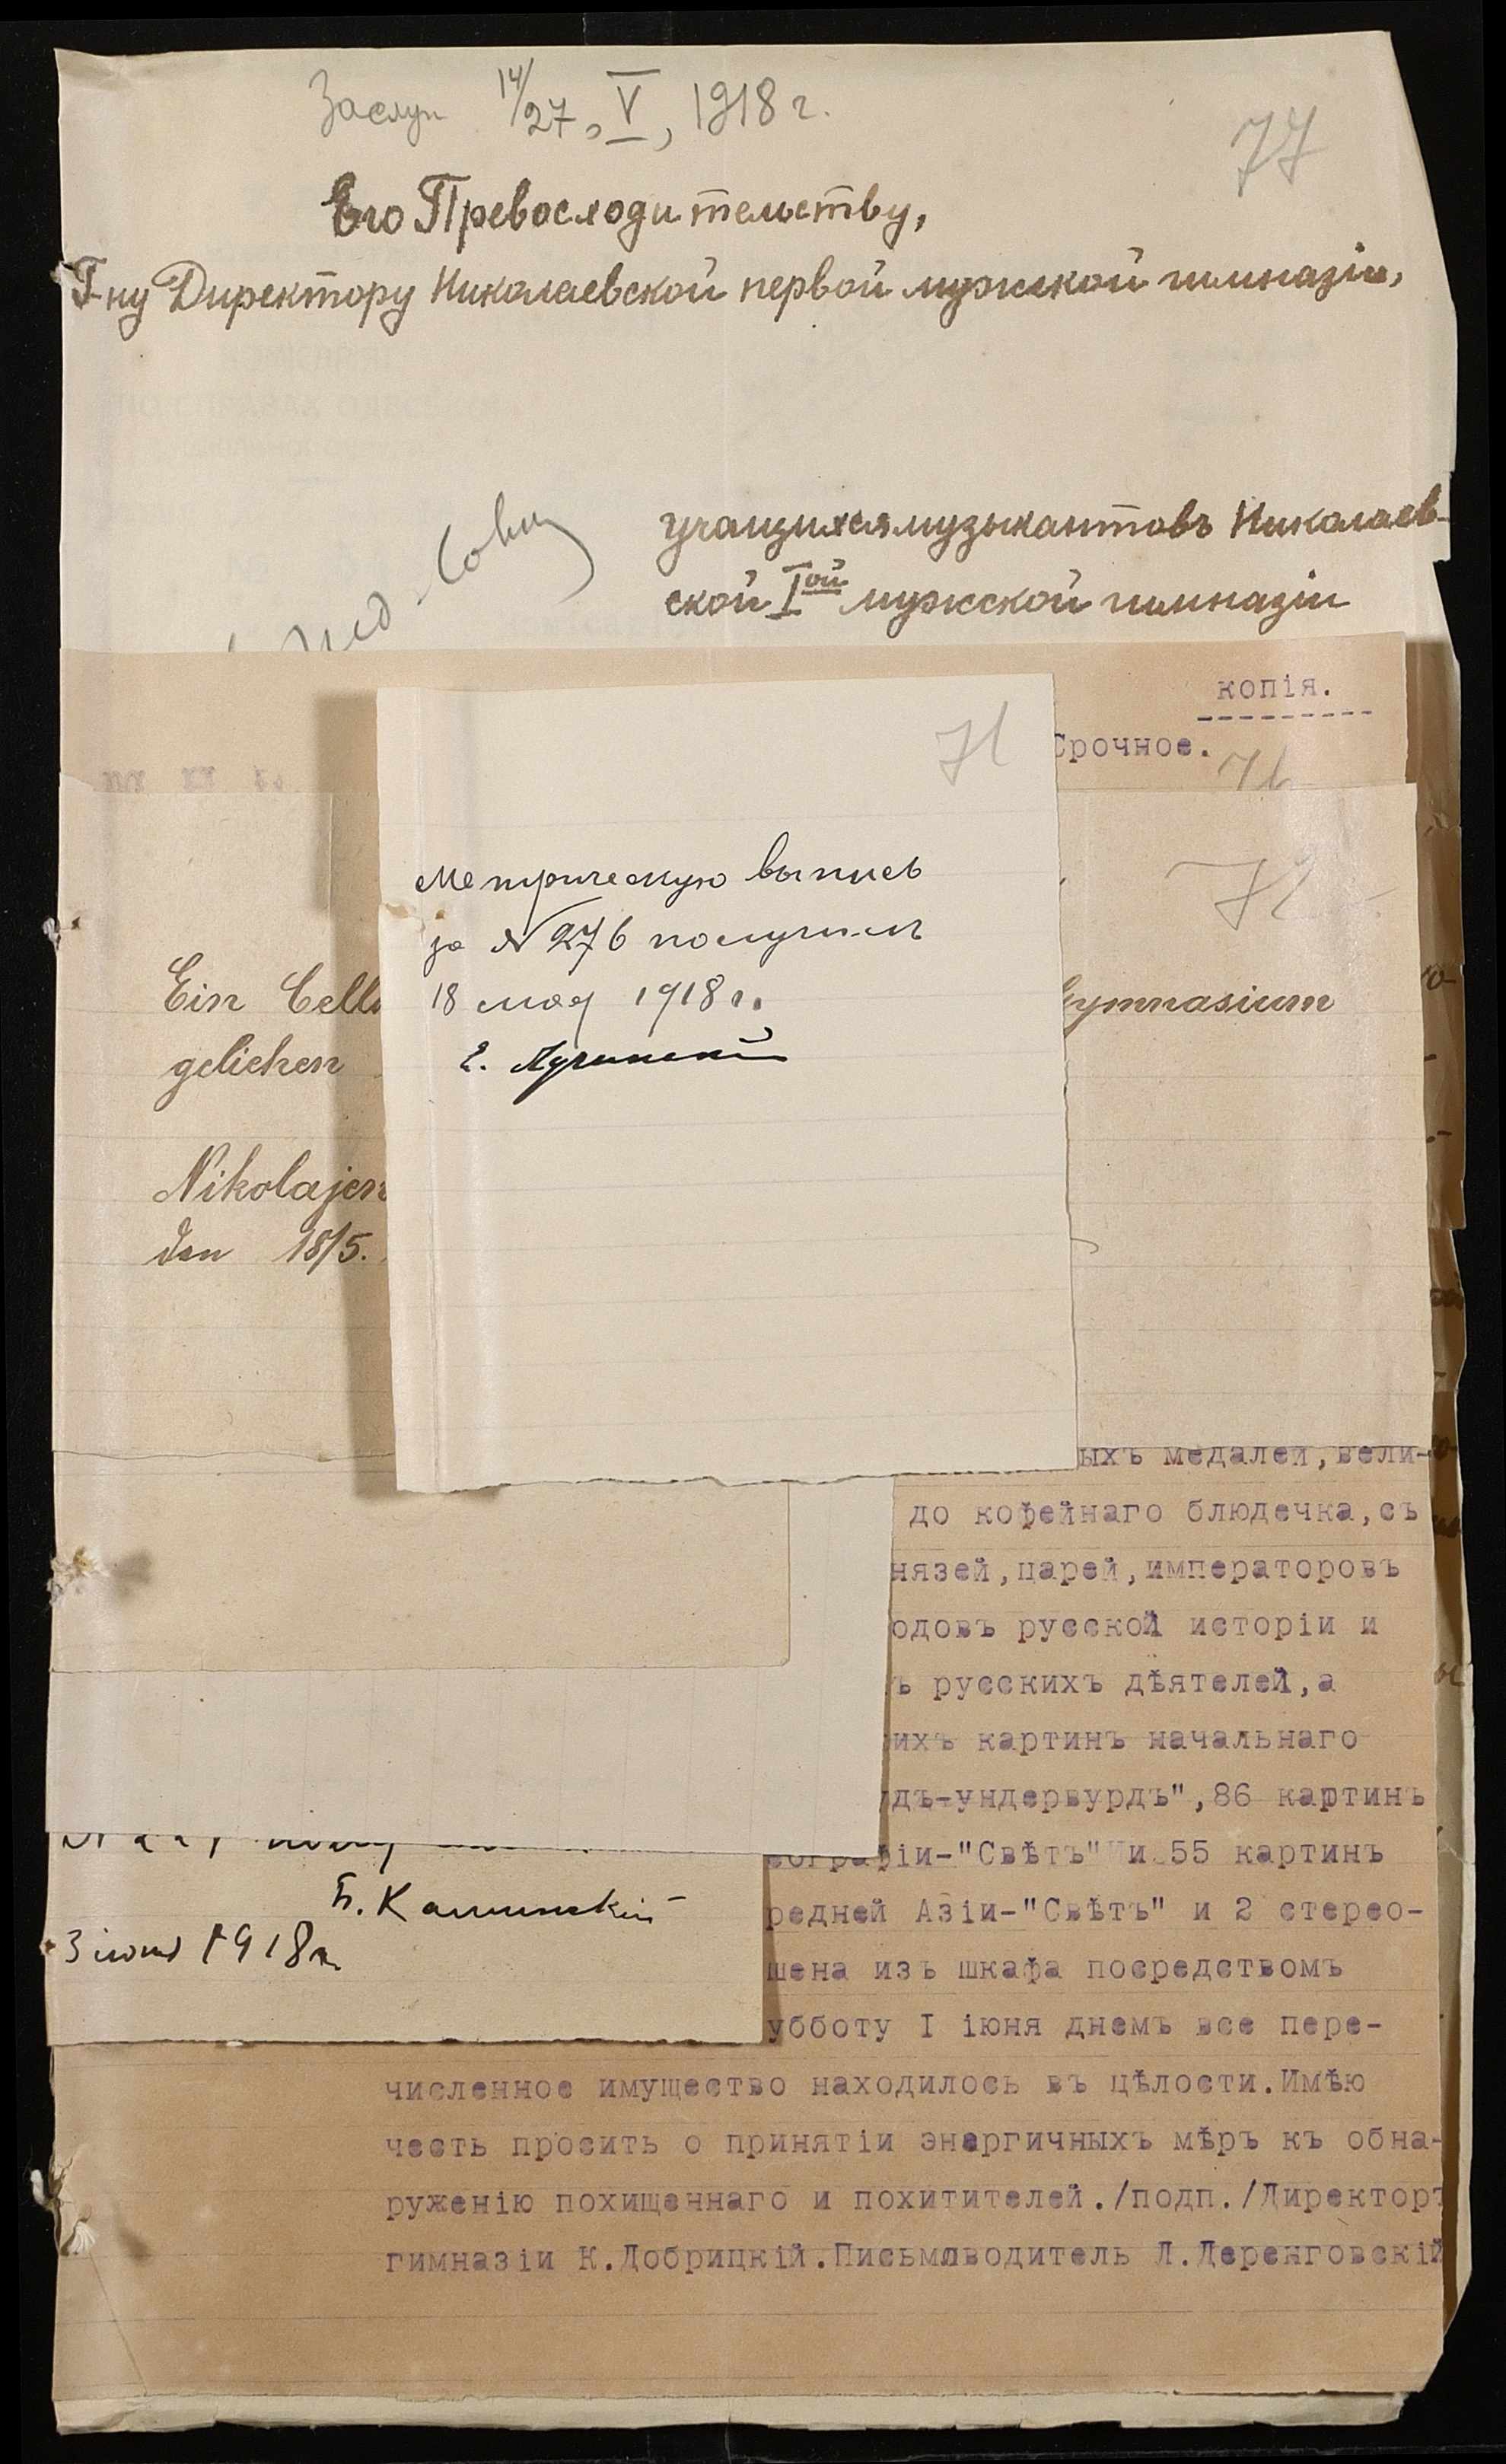 Заслуш 14/27, V, 1918 г.
77
Его Превосходительству,
Г-ну Директору Николаевской первой мужской гимназіи,
учащихся музыкантовъ Николаев-
ской Iой мужской гимназіи
копія.
Срочное.
76
71
Метрическую выпись
за №276 получилъ
18 мая 1918 г.
72
Ein Cello
Gymnasium
geliehen
Nikolajew
den 18/5.
ыхъ медалей,вели-
до кофейнаго блюдечка,съ
нязей,царей,императоровъ
одовъ русской исторіи и
ъ русскихъ дѣятелей,а
ихъ картинъ начальнаго
дъ-ундервурдъ",86 картинъ
еографіи-"Свѣтъ" и 55 картинъ
редней Азіи-"Свѣтъ" и 2 стерео-
шена изъ шкафа посредствомъ
убботу I іюня днемъ все пере-
Б. Калинскій
3 іюня 1918 г.
численное имущество находилось въ цѣлости.Имѣю
честь просить о принятіи энергичныхъ мѣръ къ обна-
руженію похищеннаго и похитителей./подп./Директоръ
гимназіи К.Добрицкій.Письмоводитель Л.Деренговскій